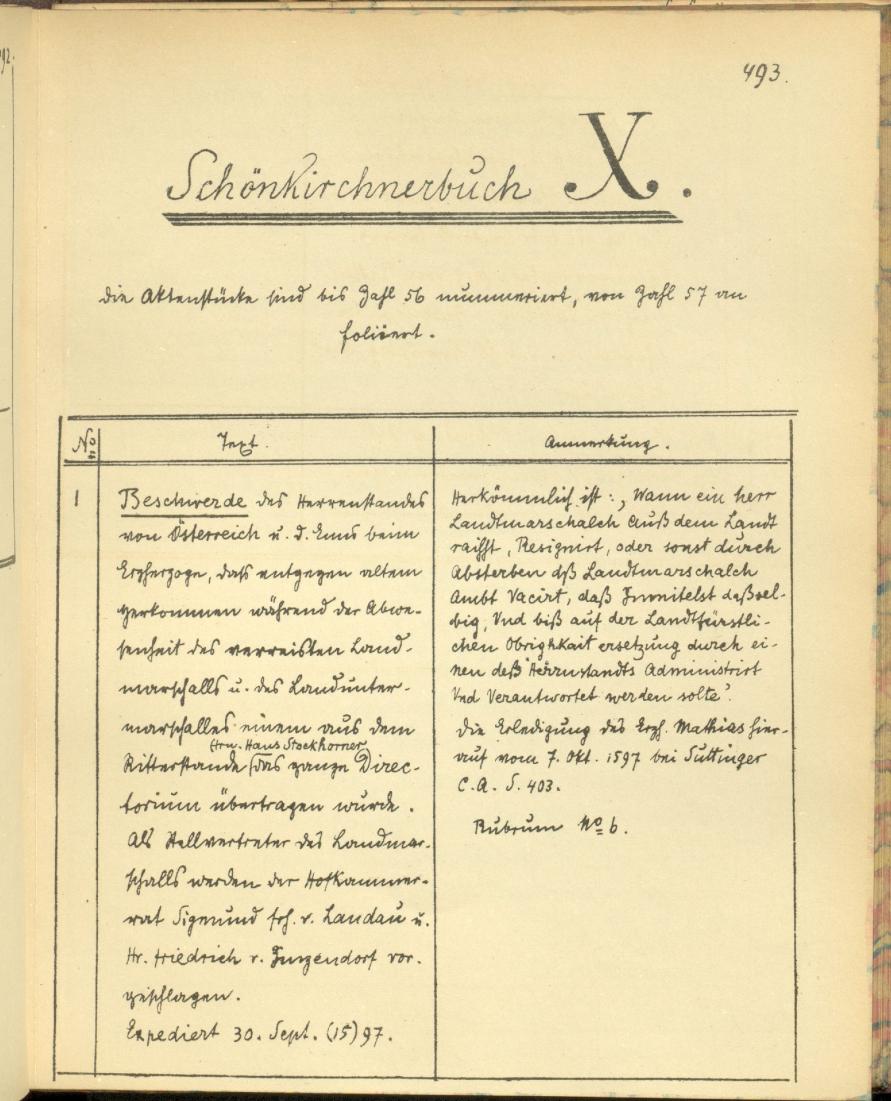 493.
Schönkirchnerbuch X.
Die Aktenstücke sind bis Zahl 56 nummeriert, von Zahl 57 an
foliiert.
No
Text.
Anmerkung.
1
Beschwerde des Herrenstandes
von Österreich u. d. Enns beim
Erzherzoge, dass entgegen altem
Herkommen während der Abwe-
senheit des verreisten Land-
marschalls u. des Landunter-
marschalles einem aus dem
(Hrn. Hans Stockhorner)
Ritterstande das ganze Direc-
torium übertragen wurde.
Als Stellvertreter des Landmar-
schalls werden der Hofkammer-
rat Sigmund frh. v. Landau u.
Hr. Friedrich v. Zinzendorf vor-
geschlagen.
Expediert 30. Sept. (15)97.
Herkömmlich ist: „Wann ein herr
Landtmarschalch auß dem Landt
raißt, Resignirt, oder sonst durch
Absterben dß Landtmarschalch
Ambt Vacirt, daß Inmitelst daßsel-
big, Vnd biß auf der Landtfürstli-
chen Obrighkait ersetzung durch ei-
nen deß Herrnstandts Administrirt
Vnd Verantwortet werden solte".
Die Erledigung des Erzh. Mathias hier-
auf vom 7. Okt. 1597 bei Suttinger
C. A. S. 403.
Rubrum No 6.